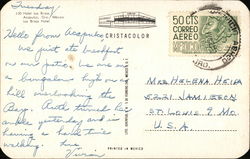 Thursday
120 Hotel Las Brisas
Acapulco, Gro., México
Las Brisas
CRISTACOLOR
50 CTS
CORREO
AEREO
MEXICO
Hello from Acapulco
We just ate breakfast
on our patio. We are in
a bungalow high on a
hill overlooking the
Bay. Ruth turned her
ankle yesterday and is
having a hard time
walking. Love
Vivian
Mrs Helena Heip
Jamieson
St. Louis 9 Mo.
U.S.A.
PRINTED IN MEXICO